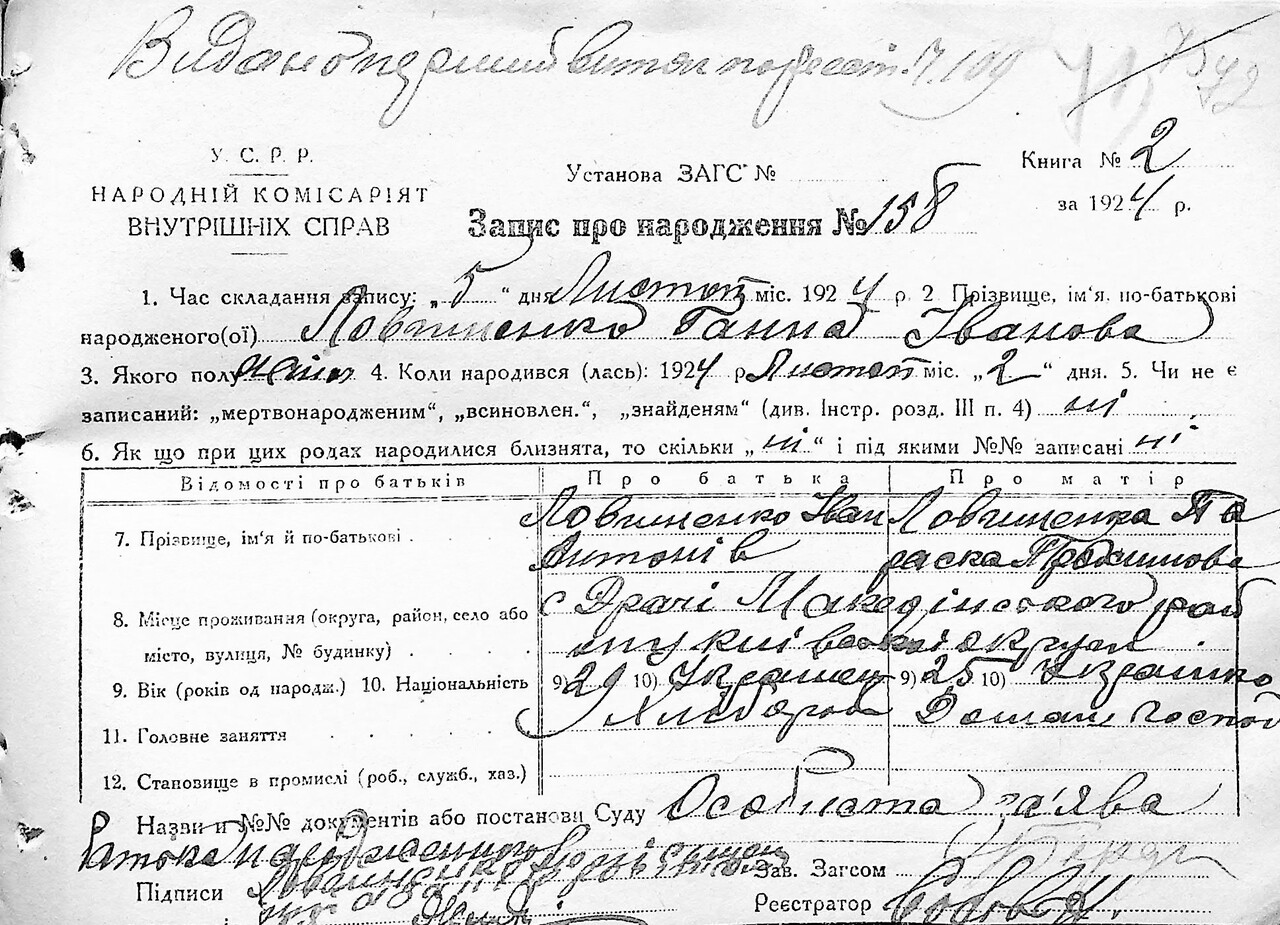 Видано перший витяг по реєст. № 109
72
У. С. Р. Р.
НАРОДНІЙ КОМІСАРІЯТ
ВНУТРІШНІХ СПРАВ
Установа ЗАГС №
Книга № 2
за 1924 р.
Запис про народження № 158
1. Час складання запису: „5“ дня Листоп міс. 1924 р 2 Прізвище, ім'я, по-батькові
народженого(ої) Ловшиненко Ганна Іванова
3. Якого полу жіноч 4. Коли народився (лась): 1924 р Листоп міс. „2“ дня. 5. Чи не є
записаний: „мертвонародженим“, „всиновлен.“, „знайденям“ (див. Інстр. розд. III п. 4) ні
6. Як що при цих родах народилися близнята, то скільки „ні“ і під якими №№ записані ні
Відомості про батьків Про батька Про матір
7. Прізвище, ім'я й по-батькові Ловшиненко Іван Антонів Ловшиненка Параска
8. Місце проживання (округа, район, село або с Драчі
місто, вулиця, № будинку) округи
9. Вік (років од народж.) 10. Національність 9) 29 10) Українец 9) 25 10) Українка
11. Головне заняття Хлібороб Домаш господ
12. Становище в промислі (роб., служб., хаз.)
Назви и №№ документів або постанови Суду Особиста за'ява
Підписи
Зав. Загсом
Реєстратор